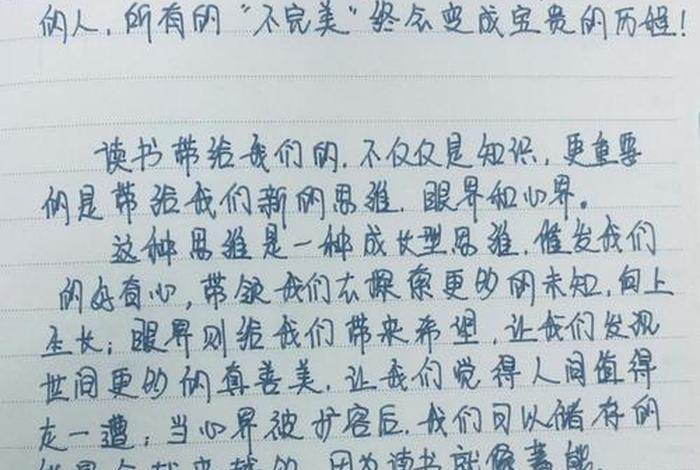 的人，所有的“不完美”终会变成宝贵的历程！
读书带给我们的，不仅仅是知识，更重要
的是带给我们新的思维，眼界和心界。
这种思维是一种成长型思维，催发我们
的好奇心，带领我们去探索更多的未知，向上
生长；眼界则给我们带来希望，让我们发现
世间更多的真善美，让我们觉得人间值得
走一遭；当心界被扩容后，我们可以储存的
能量会越来越多，因为读书就像蓄能